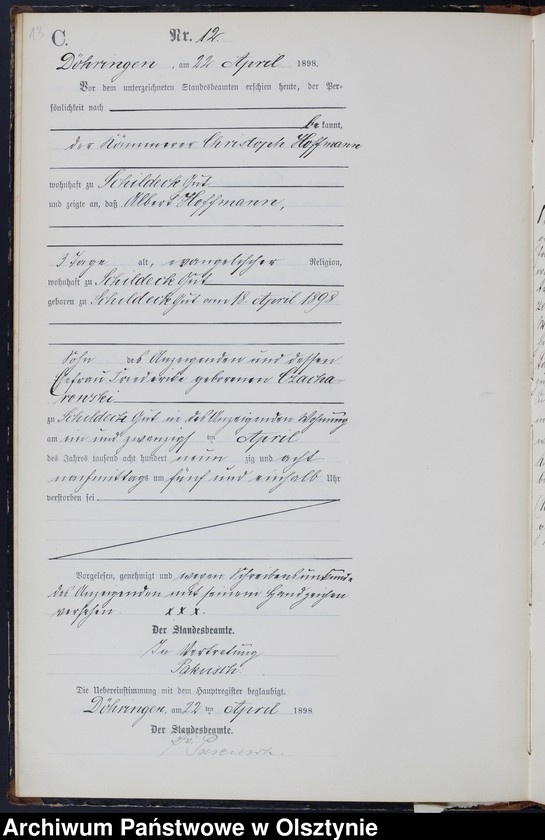 13
C.
Nr. 12.
Döhringen, am 22 April 1898.
Vor dem unterzeichneten Standesbeamten erschien heute, der Per-
sönlichkeit nach
bekannt,
der Kämmerer Christoph Hoffmann
wohnhaft zu Schildeck Gut
und zeigte an, daß Albert Hoffmann,
3 Tage alt, evangelischer Religion,
wohnhaft zu Schildeck Gut
geboren zu Schildeck Gut am 18. April 1898
Sohn des Anzeigenden und dessen
Ehefrau Friederike geborenen Czacha-
rowski
zu Schildeck Gut in des Anzeigenden Wohnung
am ein und zwanzigsten April
des Jahres tausend acht hundert neun zig und acht
nachmittags um fünf und einhalb Uhr
verstorben sei
Vorgelesen, genehmigt und wegen Schreibensunkunde
des Anzeigenden mit seinem Handzeichen
versehen x x x.
Der Standesbeamte.
In Vertretung
Die Uebereinstimmung mit dem Hauptregister beglaubigt.
Döhringen, am 22 ten April 1898
Der Standesbeamte.
Archiwum Państwowe w Olsztynie